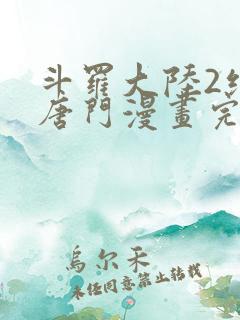 斗羅大陸2
唐門漫畫完
烏尔禾
未任同意禁止转载